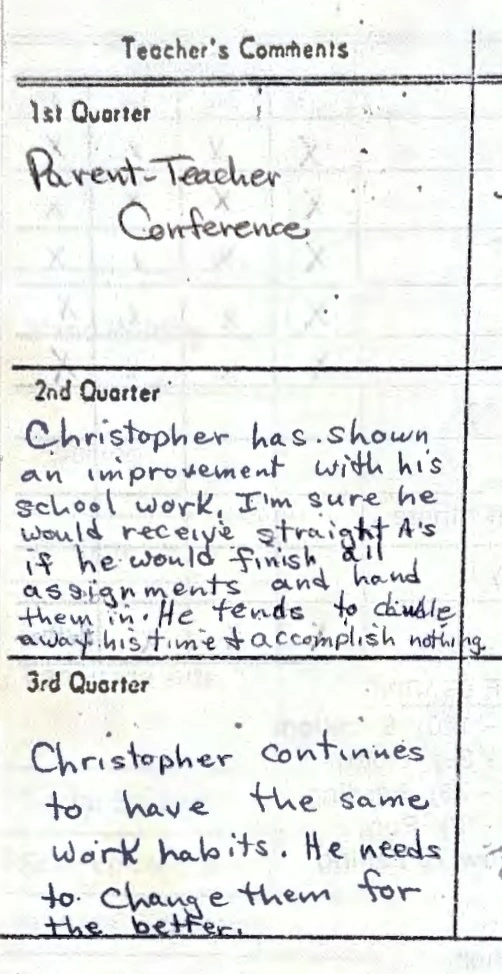 Teacher's Comments
1st Quarter
Parent-Teacher
Conference
2nd Quarter
Christopher has shown
an improvement with his
school work. I'm sure he
would receive straight A's
if he would finish all
assignments and hand
them in. He tends to
away his time & accomplish nothing.
3rd Quarter
Christopher continues
to have the same
work habits. He needs
to change them for
the better.